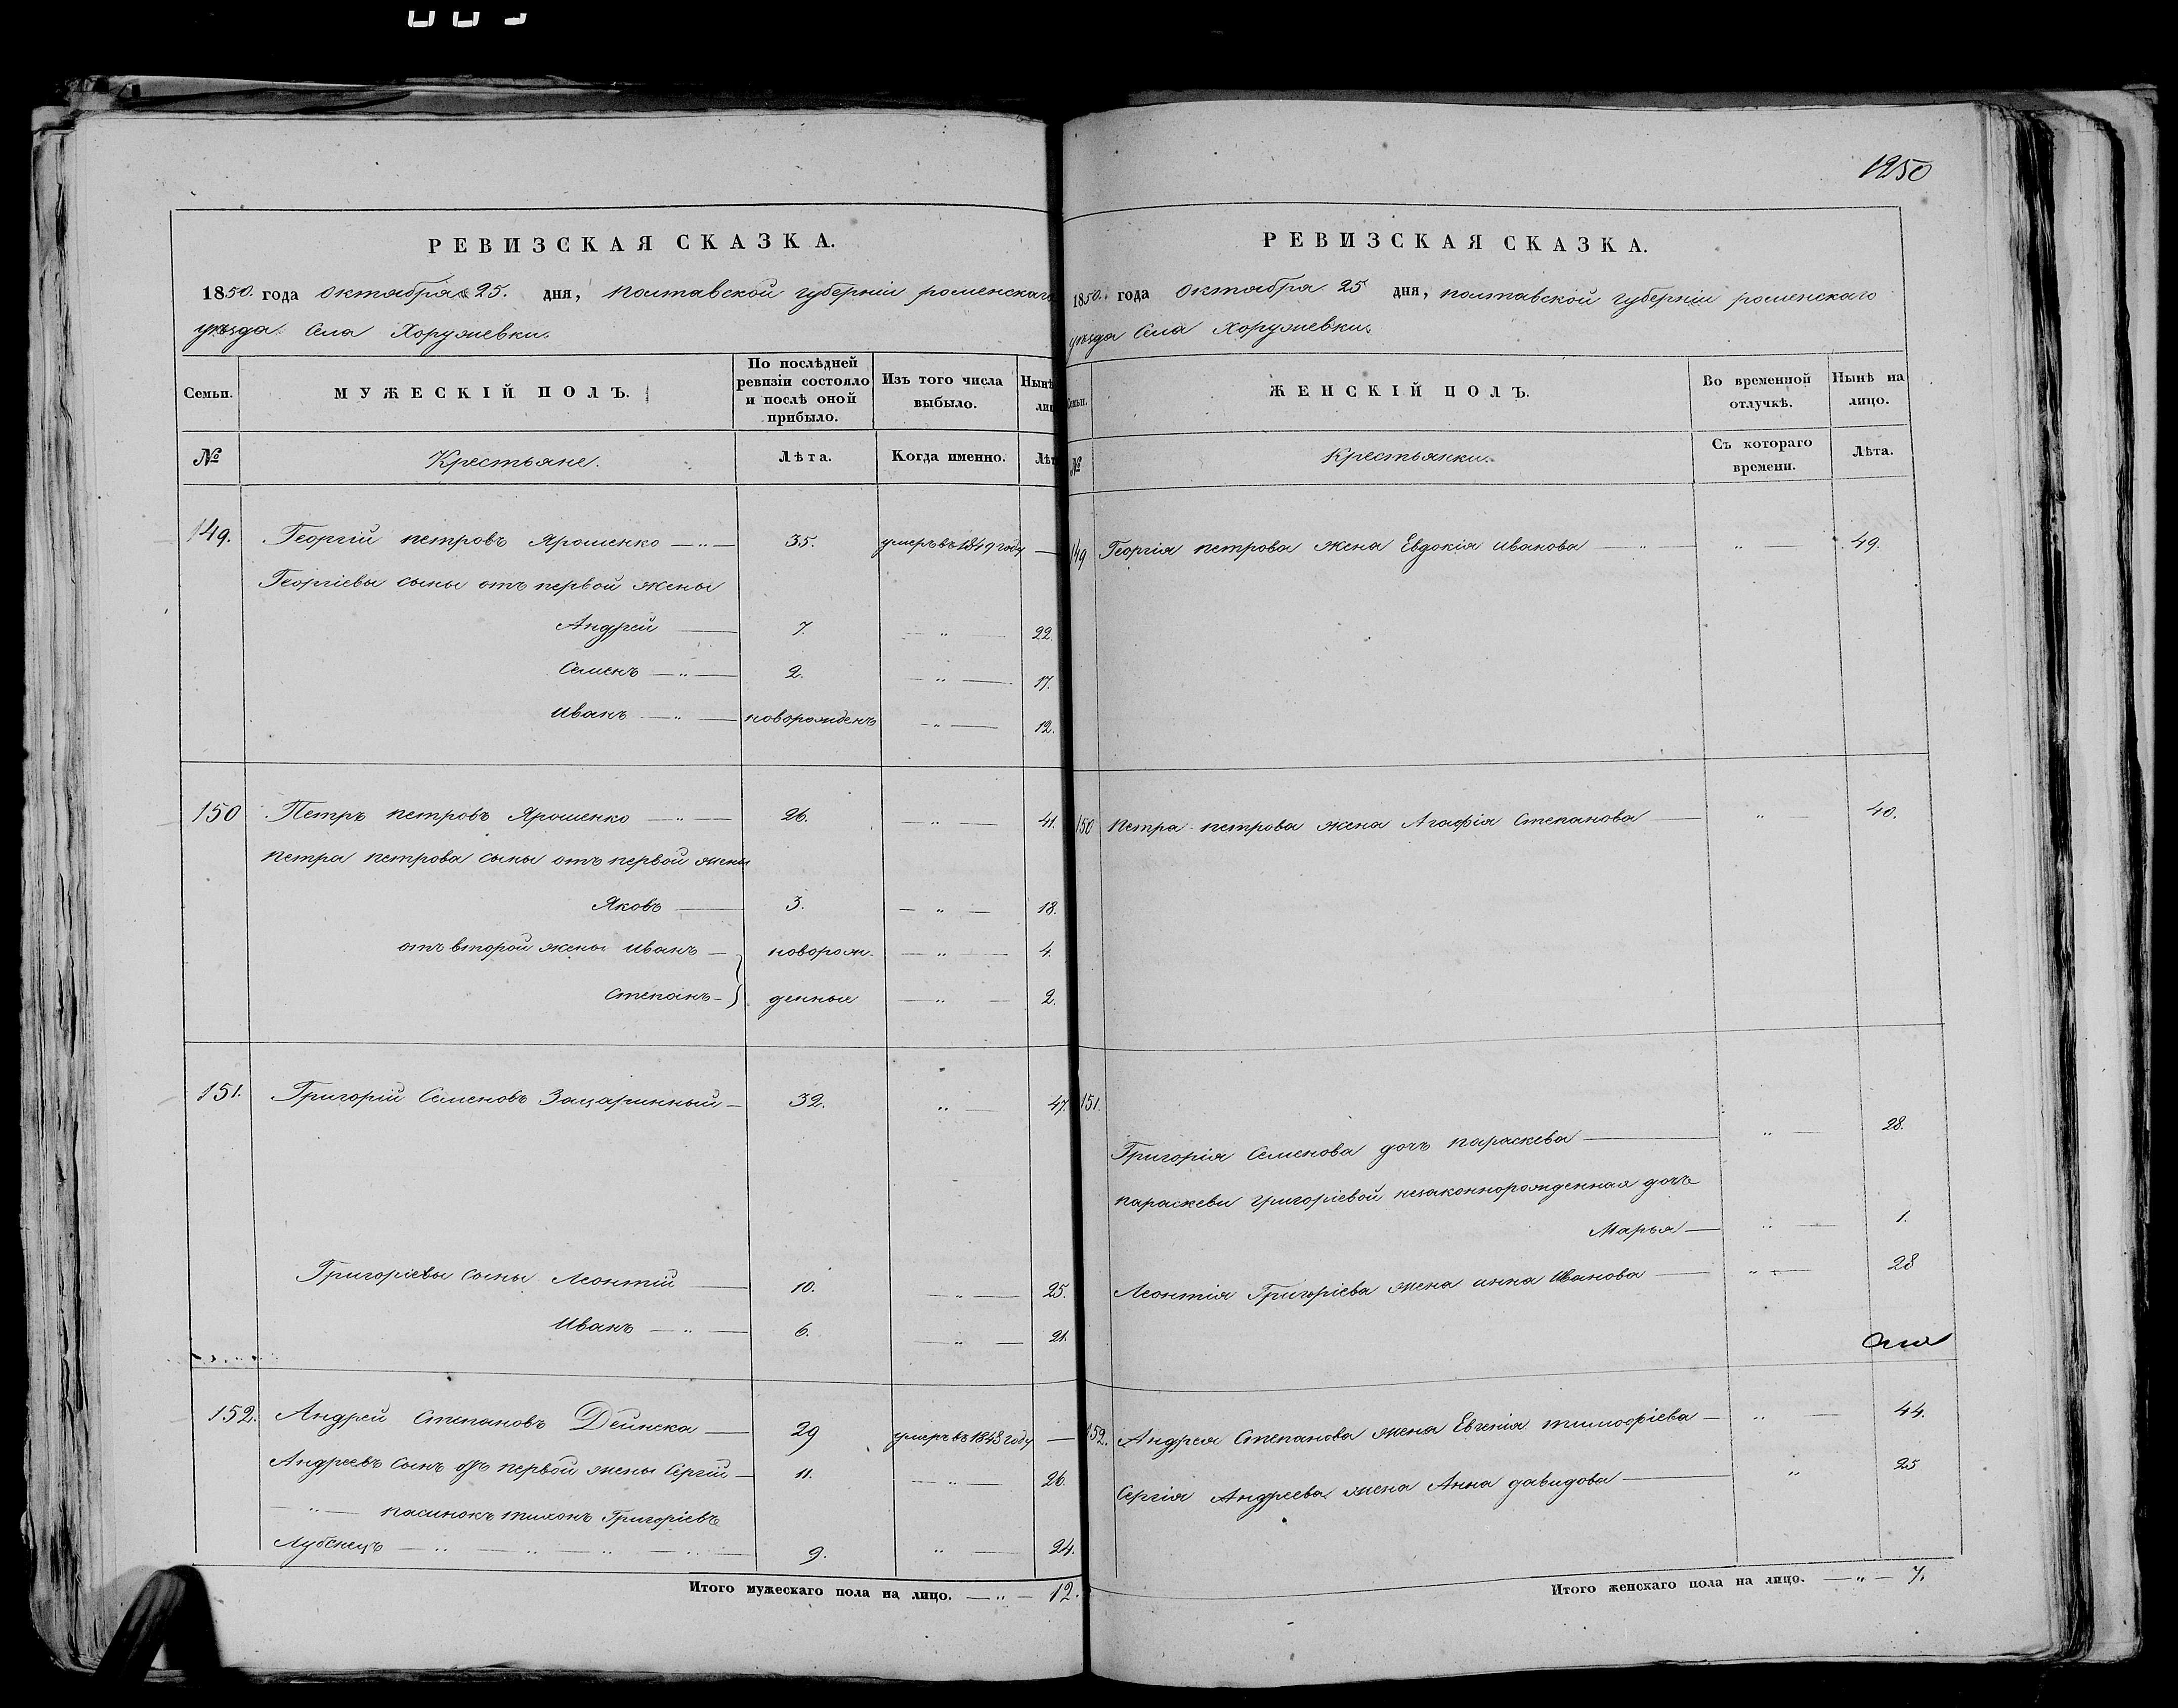 РЕВИЗСКАЯ СКАЗКА.
1850. года октября 25. дня, полтавской губерніи роменскаго
уѣзда. Села Хоружевки.
Семьи. МУЖЕСКІЙ ПОЛЪ. По послѣдней ревизіи состояло и послѣ оной прибыло. Изъ того числа выбыло. Нынѣ
№ Крестьяне. Лѣта. Когда именно. Лѣт
149. Георгій петровъ Ярошенко — „ — 35. умеръ въ 1849 году —
Георгіевы сыны отъ первой жены
Андрей — 7. — „ — 22.
Семенъ — „ — 2. — „ — 17.
Иванъ — „ — новорожденъ — „ — 12.
150 Петръ петровъ Ярошенко — „ — 26. — „ — 41.
петра петрова сыны отъ первой жены
Яковъ — 3. — „ — 18.
отъ второй жены Иванъ — новорож- — „ — 4.
Степанъ — денные — „ — 2.
151. Григорій Семеновъ Зацаринный — 32. „ — 47.
Григоріевы сыны Леонтій — 10. — „ — 25.
Иванъ — „ — 6. — „ — 21.
152. Андрей Степановъ Дейнека — 29 умеръ въ 1848 году —
Андреевъ сынъ отъ первой жены Сергій — 11. — „ — 26.
— „ — пасинокъ тихонъ Григоріевъ
Лубенецъ — „ — „ — „ — „ — 9. „ — 24.
Итого мужескаго пола на лицо. — „ — 12.
1250
РЕВИЗСКАЯ СКАЗКА.
1850. года Октября 25 дня, полтавской губерніи роменскаго
уѣзда Села Хоружевки.
Семьи. ЖЕНСКІЙ ПОЛЪ. Во временной отлучкѣ. Нынѣ на лицо.
№ Крестьянки. Съ котораго времени. Лѣта.
149 Георгія петрова жена Евдокія иванова — „ — „ — 49.
150 Петра петрова жена Агафія Степанова — „ — 40.
151.
Григорія Семенова дочь параскева — „ — 28.
параскеви григоріевой незаконнорожденная дочь
Марья — „ — 1.
Леонтія Григоріева жена анна Иванова — „ — 28
152. Андрея Степанова жена Евгенія тимофіева — „ — 44.
Сергія Андреева жена Анна давидова — „ 25
Итого женскаго пола на лицо. — „ — 7.